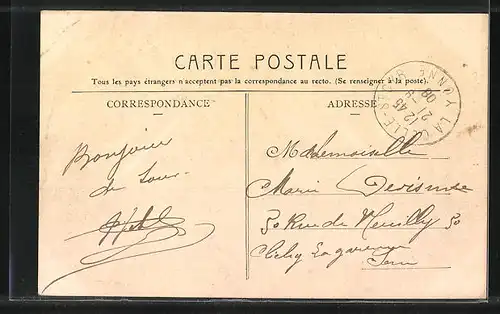 CARTE POSTALE
Tous les pays étrangers n'acceptent pas la correspondance au recto. (Se renseigner à la poste).
CORRESPONDANCE
ADRESSE
12 45
21 - 8
08
YONNE
Bonjour
de
Mademoiselle
Marie
50 Rue de Neuilly 50
Clichy La garenne